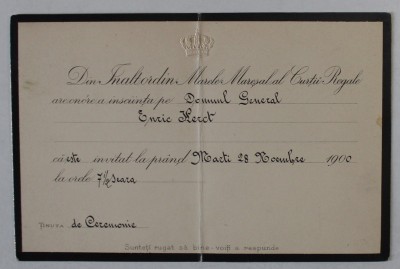 Din Înalt ordin Marele Mareșal al Curței Regale
are onóre a însciința pe Domnul General
Enric Herct
că este invitat la prânḑ Marti 28 Noembrie 1900
la orele 7½ seara
Ținuta de Ceremonie
Sunteți rugat să bine-voiți a respunde